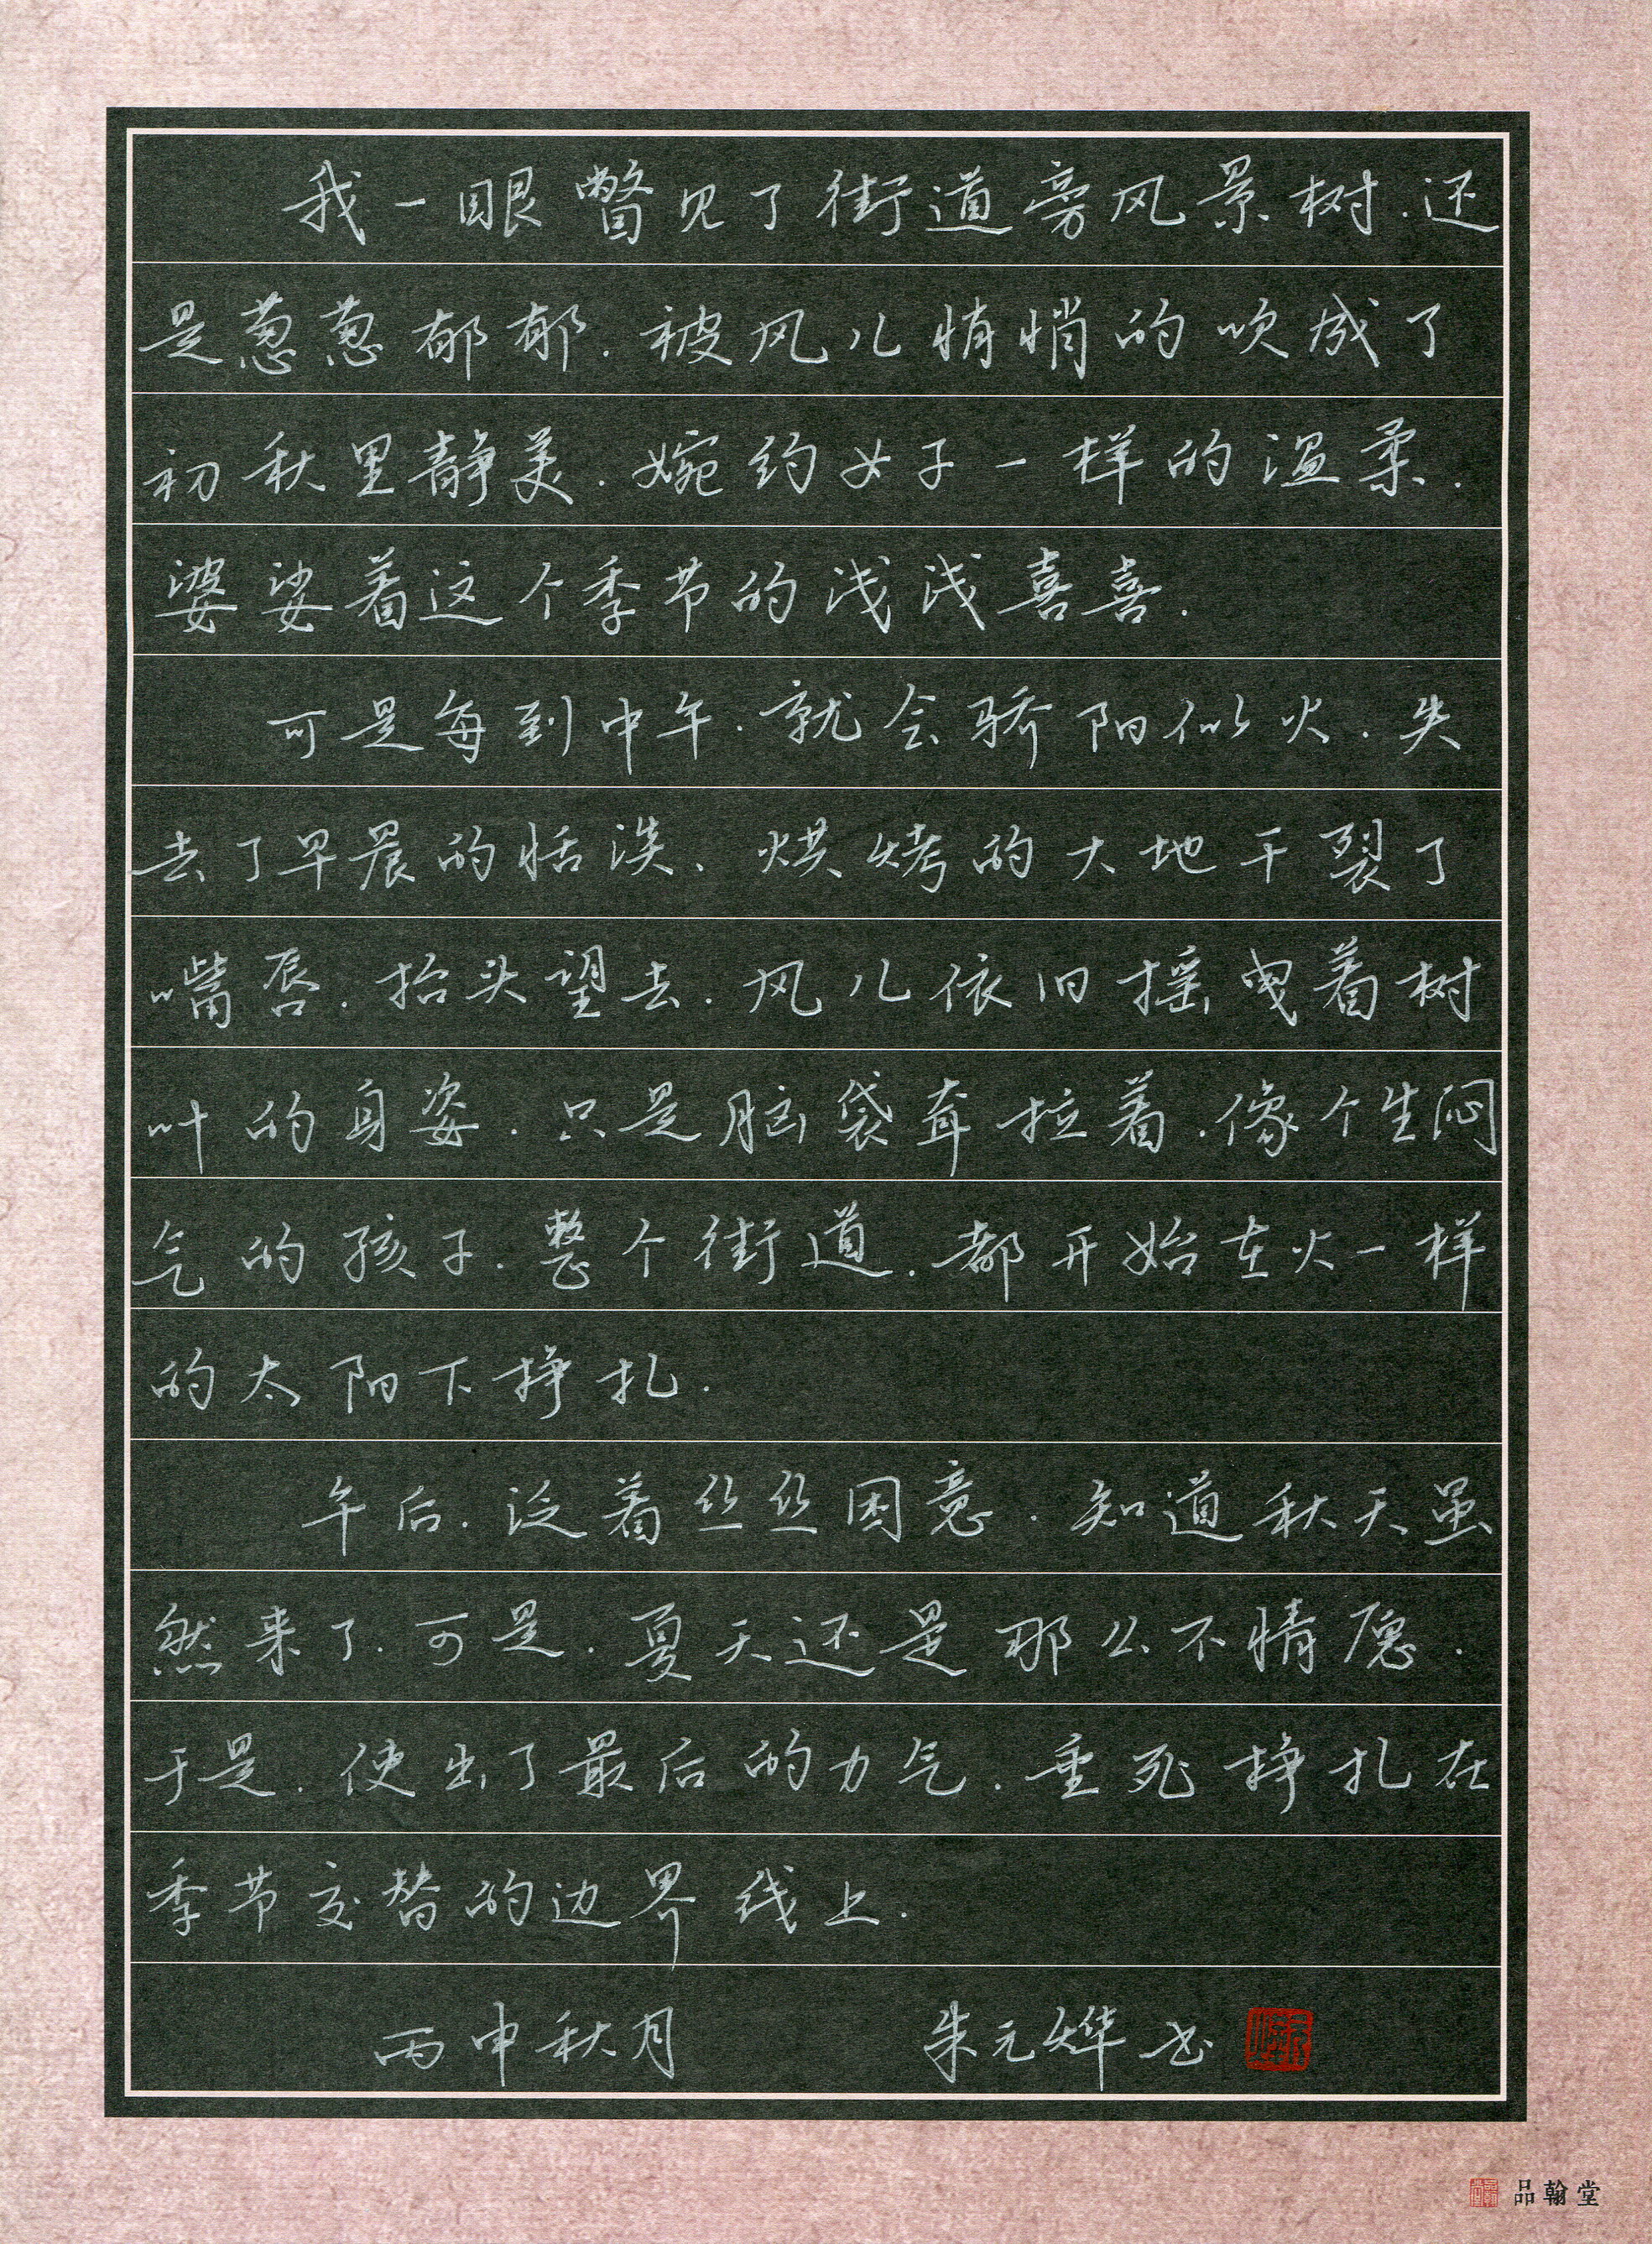 我一眼瞥见了街道旁风景树.还
是葱葱郁郁.被风儿悄悄的吹成了
初秋里静美.婉约女子一样的温柔.
婆娑着这个季节的浅浅喜喜.
可是每到中午.就会骄阳似火.失
去了早晨的恬淡、烘烤的大地干裂了
嘴唇.抬头望去.风儿依旧摇曳着树
叶的身姿.只是脑袋耷拉着.像个生闷
气的孩子.整个街道.都开始在火一样
的太阳下挣扎.
午后.泛着丝丝困意.知道秋天虽
然来了.可是.夏天还是那么不情愿.
于是.使出了最后的力气.垂死挣扎在
季节交替的边界线上.
丙申秋月 朱元烨书
品翰堂